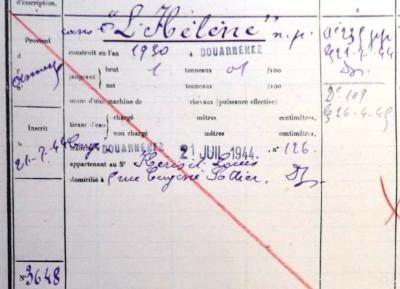 d'inscription.
"L'Hélène" n.p.
Provenant
construit en l'an 1930 à DOUARNENEZ
jaugeant brut 1 tonneaux 01 /100
net tonneaux /100
muni d'une machine de chevaux (puissance effective)
D° 109
26-4-45
tirant d'eau chargé mètres centimètres.
non chargé mètres centimètres.
Inscrit
21-7-44
DOUARNENEZ 21 JUIL 1944. n° 126.
appartenant au Sr Louis
domicilié à rue Eugène Dz.
N° 3648